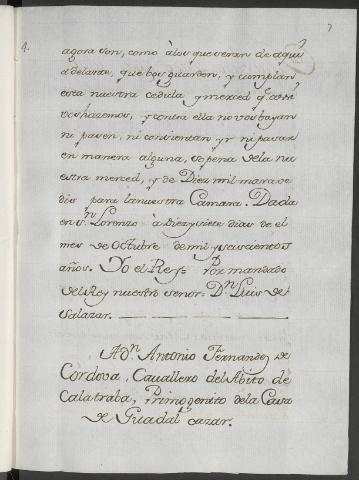 4.
7
agora son, como à los que seran de aqui
adelante, que bos guarden, y cumplan
esta nuestra cedula y merced q.e assi
vos hazemos, y contra ella no vos bayan
ni pasen, ni consientan yr ni pasar
en manera alguna, sopena de la nu
estra merced, y de Diez mil marave
dis para la nuestra Camara. Dada
en S.n Lorenzo à Diez y siete dias de el
mes de Octubre de mil y seiscientos
años. Yo el Rey = Por mandado
del Rey nuestro señor: D.n Luis de
Salazar.
A D.n Antonio Fernandez de
Cordova, Cavallero del Abito de
Calatraba, Primogenito de la Casa
de Guadalcazar.